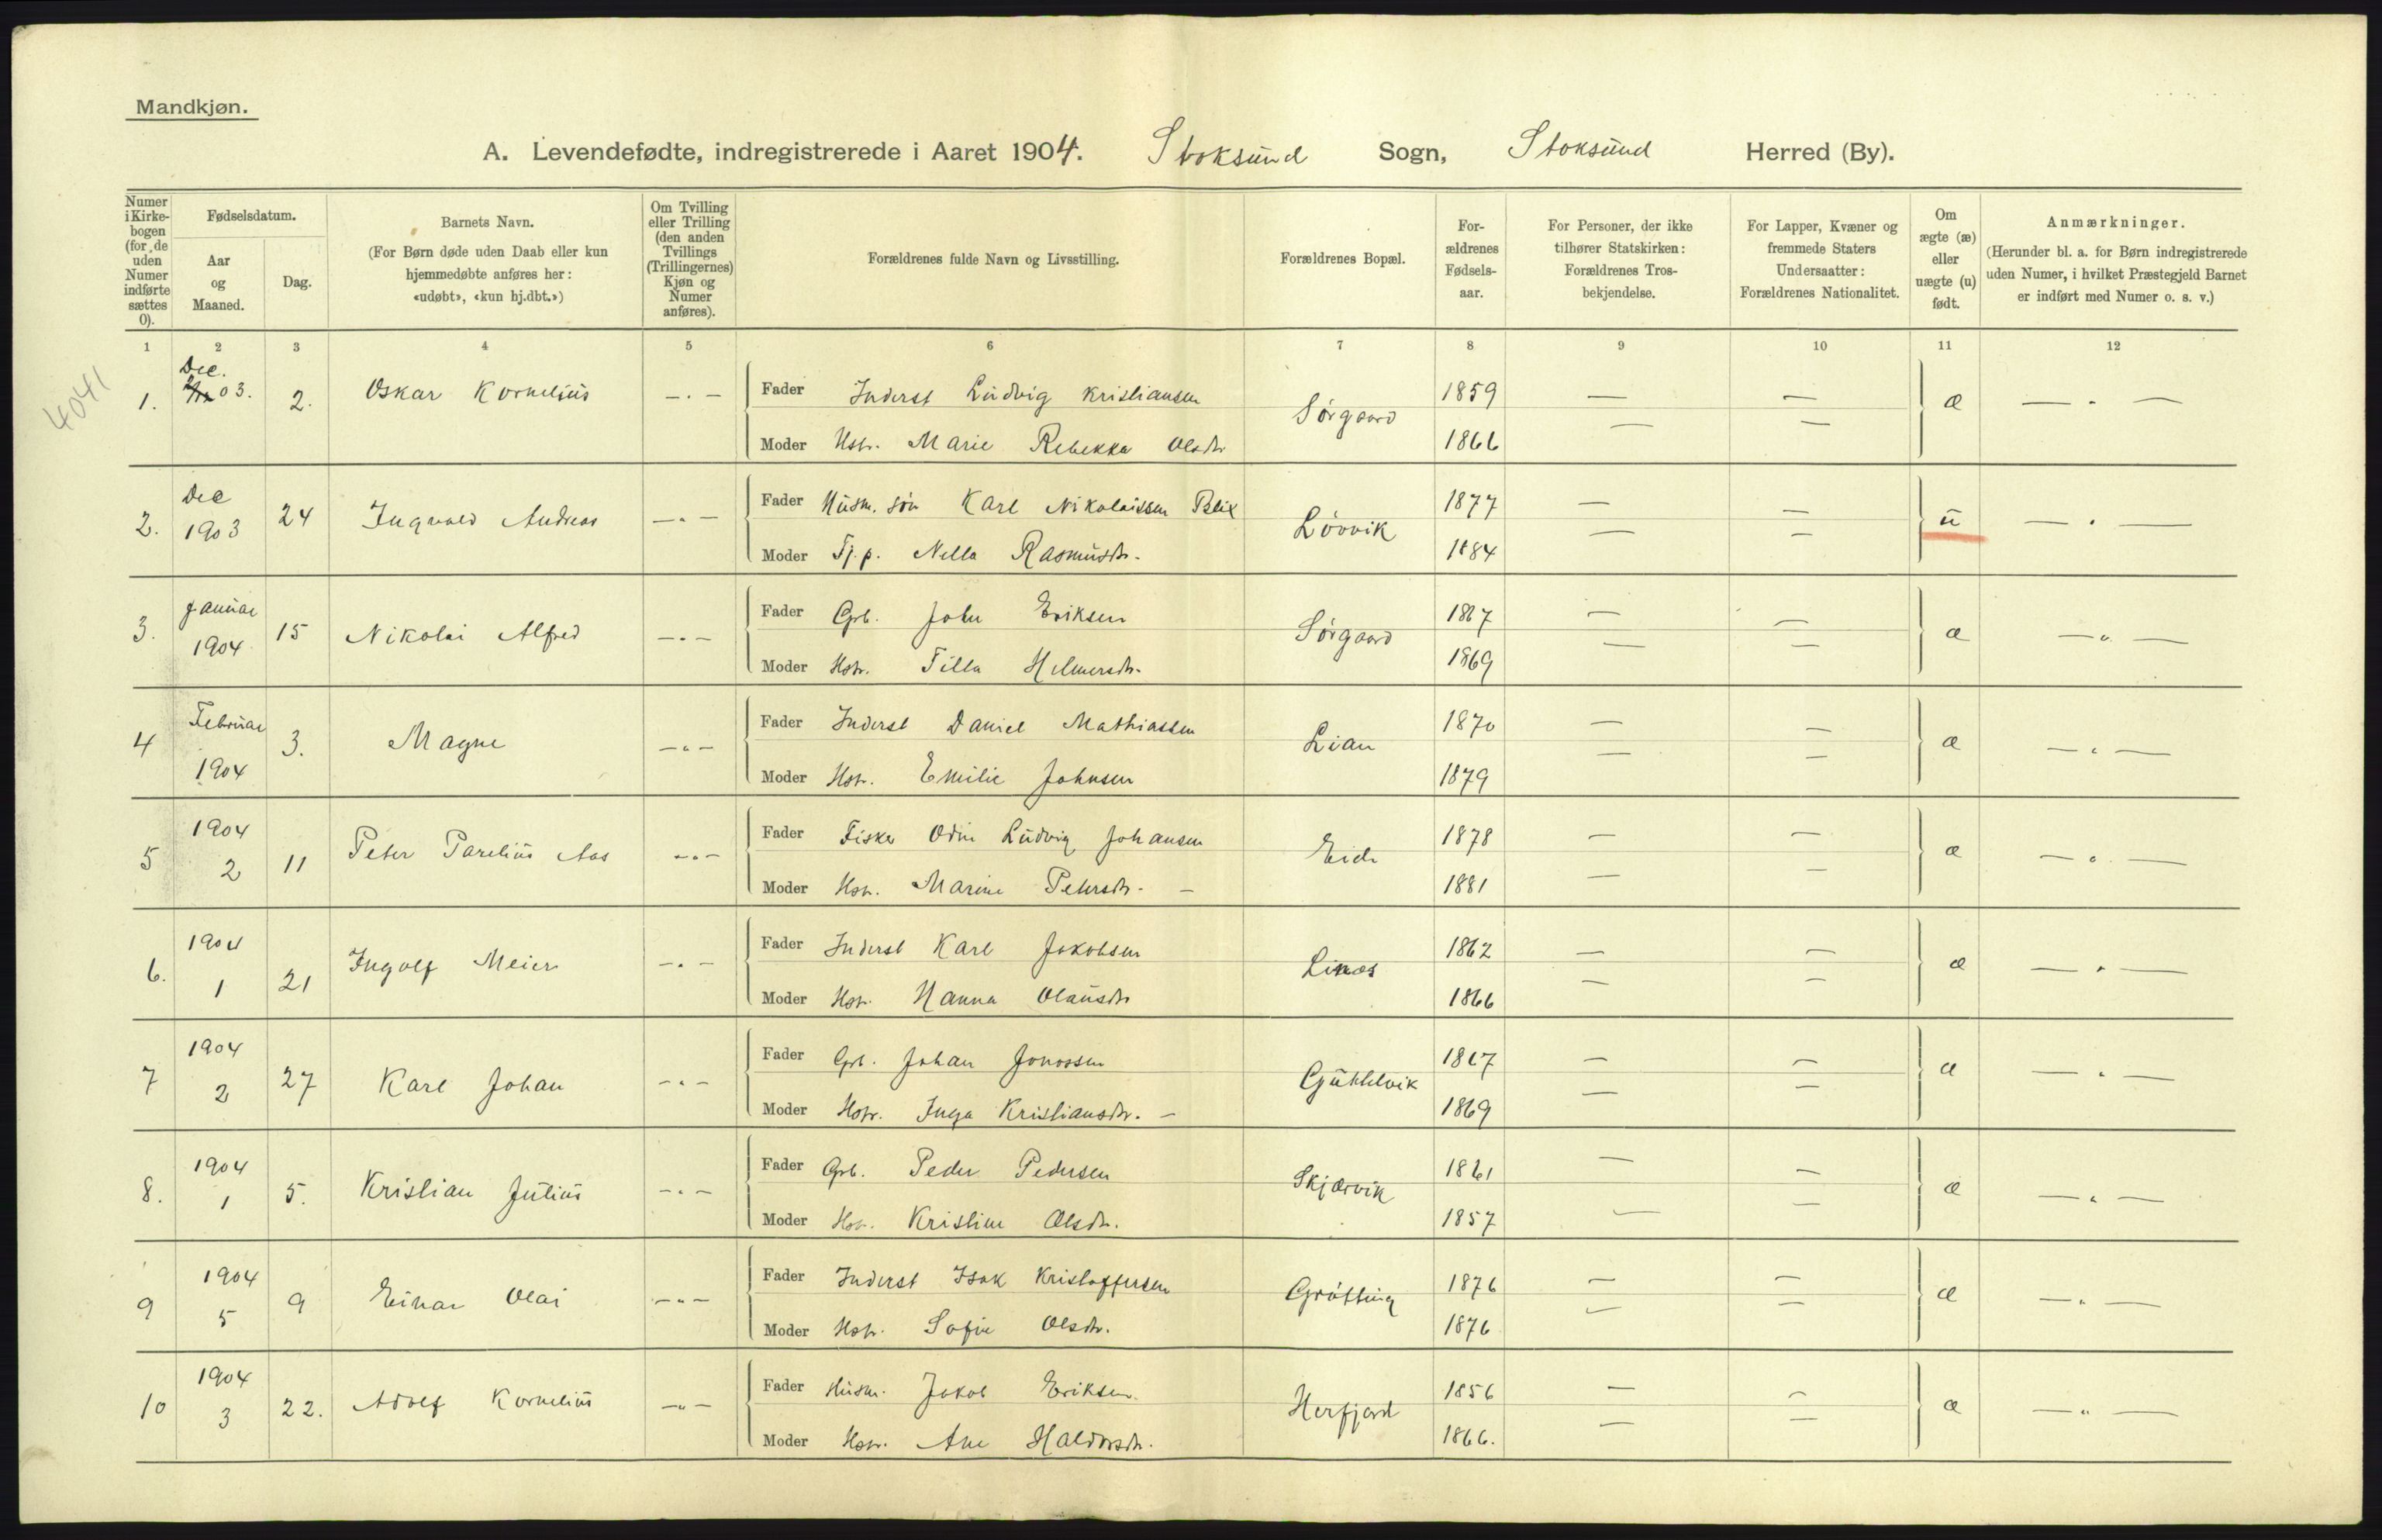 Mandkjøn.
A. Levendefødte, indregistrerede i Aaret 1904. Stoksund Sogn, Stoksund Herred (By).
Numer i Kirkebogen (for de uden Numer indførte sættes 0).
Fødselsdatum.
Aar og Maaned.
Dag.
Barnets Navn.
(For Børn døde uden Daab eller kun hjemmedøbte anføres her: «udøbt», «kun hj.dbt.»)
Om Tvilling eller Trilling (den anden Tvillings (Trillingernes) Kjøn og Numer anføres).
Forældrenes fulde Navn og Livsstilling.
Forældrenes Bopæl.
Forældrenes Fødselsaar.
For Personer, der ikke tilhører Statskirken: Forældrenes Trosbekjendelse.
For Lapper, Kvæner og fremmede Staters Undersaatter: Forældrenes Nationalitet.
Om ægte (æ) eller uægte (u) født.
Anmærkninger.
(Herunder bl. a. for Børn indregistrerede uden Numer, i hvilket Præstegjeld Barnet er indført med Numer o. s. v.)
1 2 3 4 5 6 7 8 9 10 11 12
4041
1. Dec. 03. 2. Oskar Kornelius — " — Fader Inderst Ludvig Kristiansen Sørgaard 1859 — — æ — " —
Moder Hstr. Marie Rebekka Olsdtr 1866 — —
2. Dec 1903 24 Ingvald Andreas — " — Fader Husm. søn Karl Nikolaissen Blix Løvvik 1877 — — u — " —
Moder Tj. p. Nella Rasmusdtr. 1884 — —
3. Januar 1904 15 Nikolai Alfred — " — Fader Grb. John Eriksen Sørgaard 1867 — — æ — " —
Moder Hstr. Tilla Helmersdtr. 1869 — —
4 Februar 1904 3. Magne — " — Fader Inderst Daniel Mathiassen Lian 1870 — — æ — " —
Moder Hstr. Emilie Johnsen 1879 — —
5 1904 2 11 Peter Parelius Aas — " — Fader Fisker Odin Ludvig Johansen Eide 1878 — — æ — " —
Moder Hstr. Marine Petersdtr. — 1881 — —
6. 1904 1 21 Ingolf Meier — " — Fader Inderst Karl Jakobsen Linæs 1862 — — æ — " —
Moder Hstr. Hanna Olausdtr 1866 — —
7 1904 2 27 Karl Johan — " — Fader Grb. Johan Jonassen 1867 — — æ — " —
Moder Hstr. Inga Kristiansdtr. — 1869 — —
8. 1904 1 5. Kristian Julius — " — Fader Grb. Peder Pedersen Skjærvik 1861 — — æ — " —
Moder Hstr. Kristine Olsdtr. 1857 — —
9 1904 5 9 Einar Olai — " — Fader Inderst Isak Kristoffersen Grøtting 1876 — — æ — " —
Moder Hstr. Sofie Olsdtr. 1876 — —
10 1904 3 22. Adolf Kornelius — " — Fader Husm. Jakob Eriksen. Herfjord 1856 — — æ — " —
Moder Hstr. Ane Haldorsdtr. 1866. — —